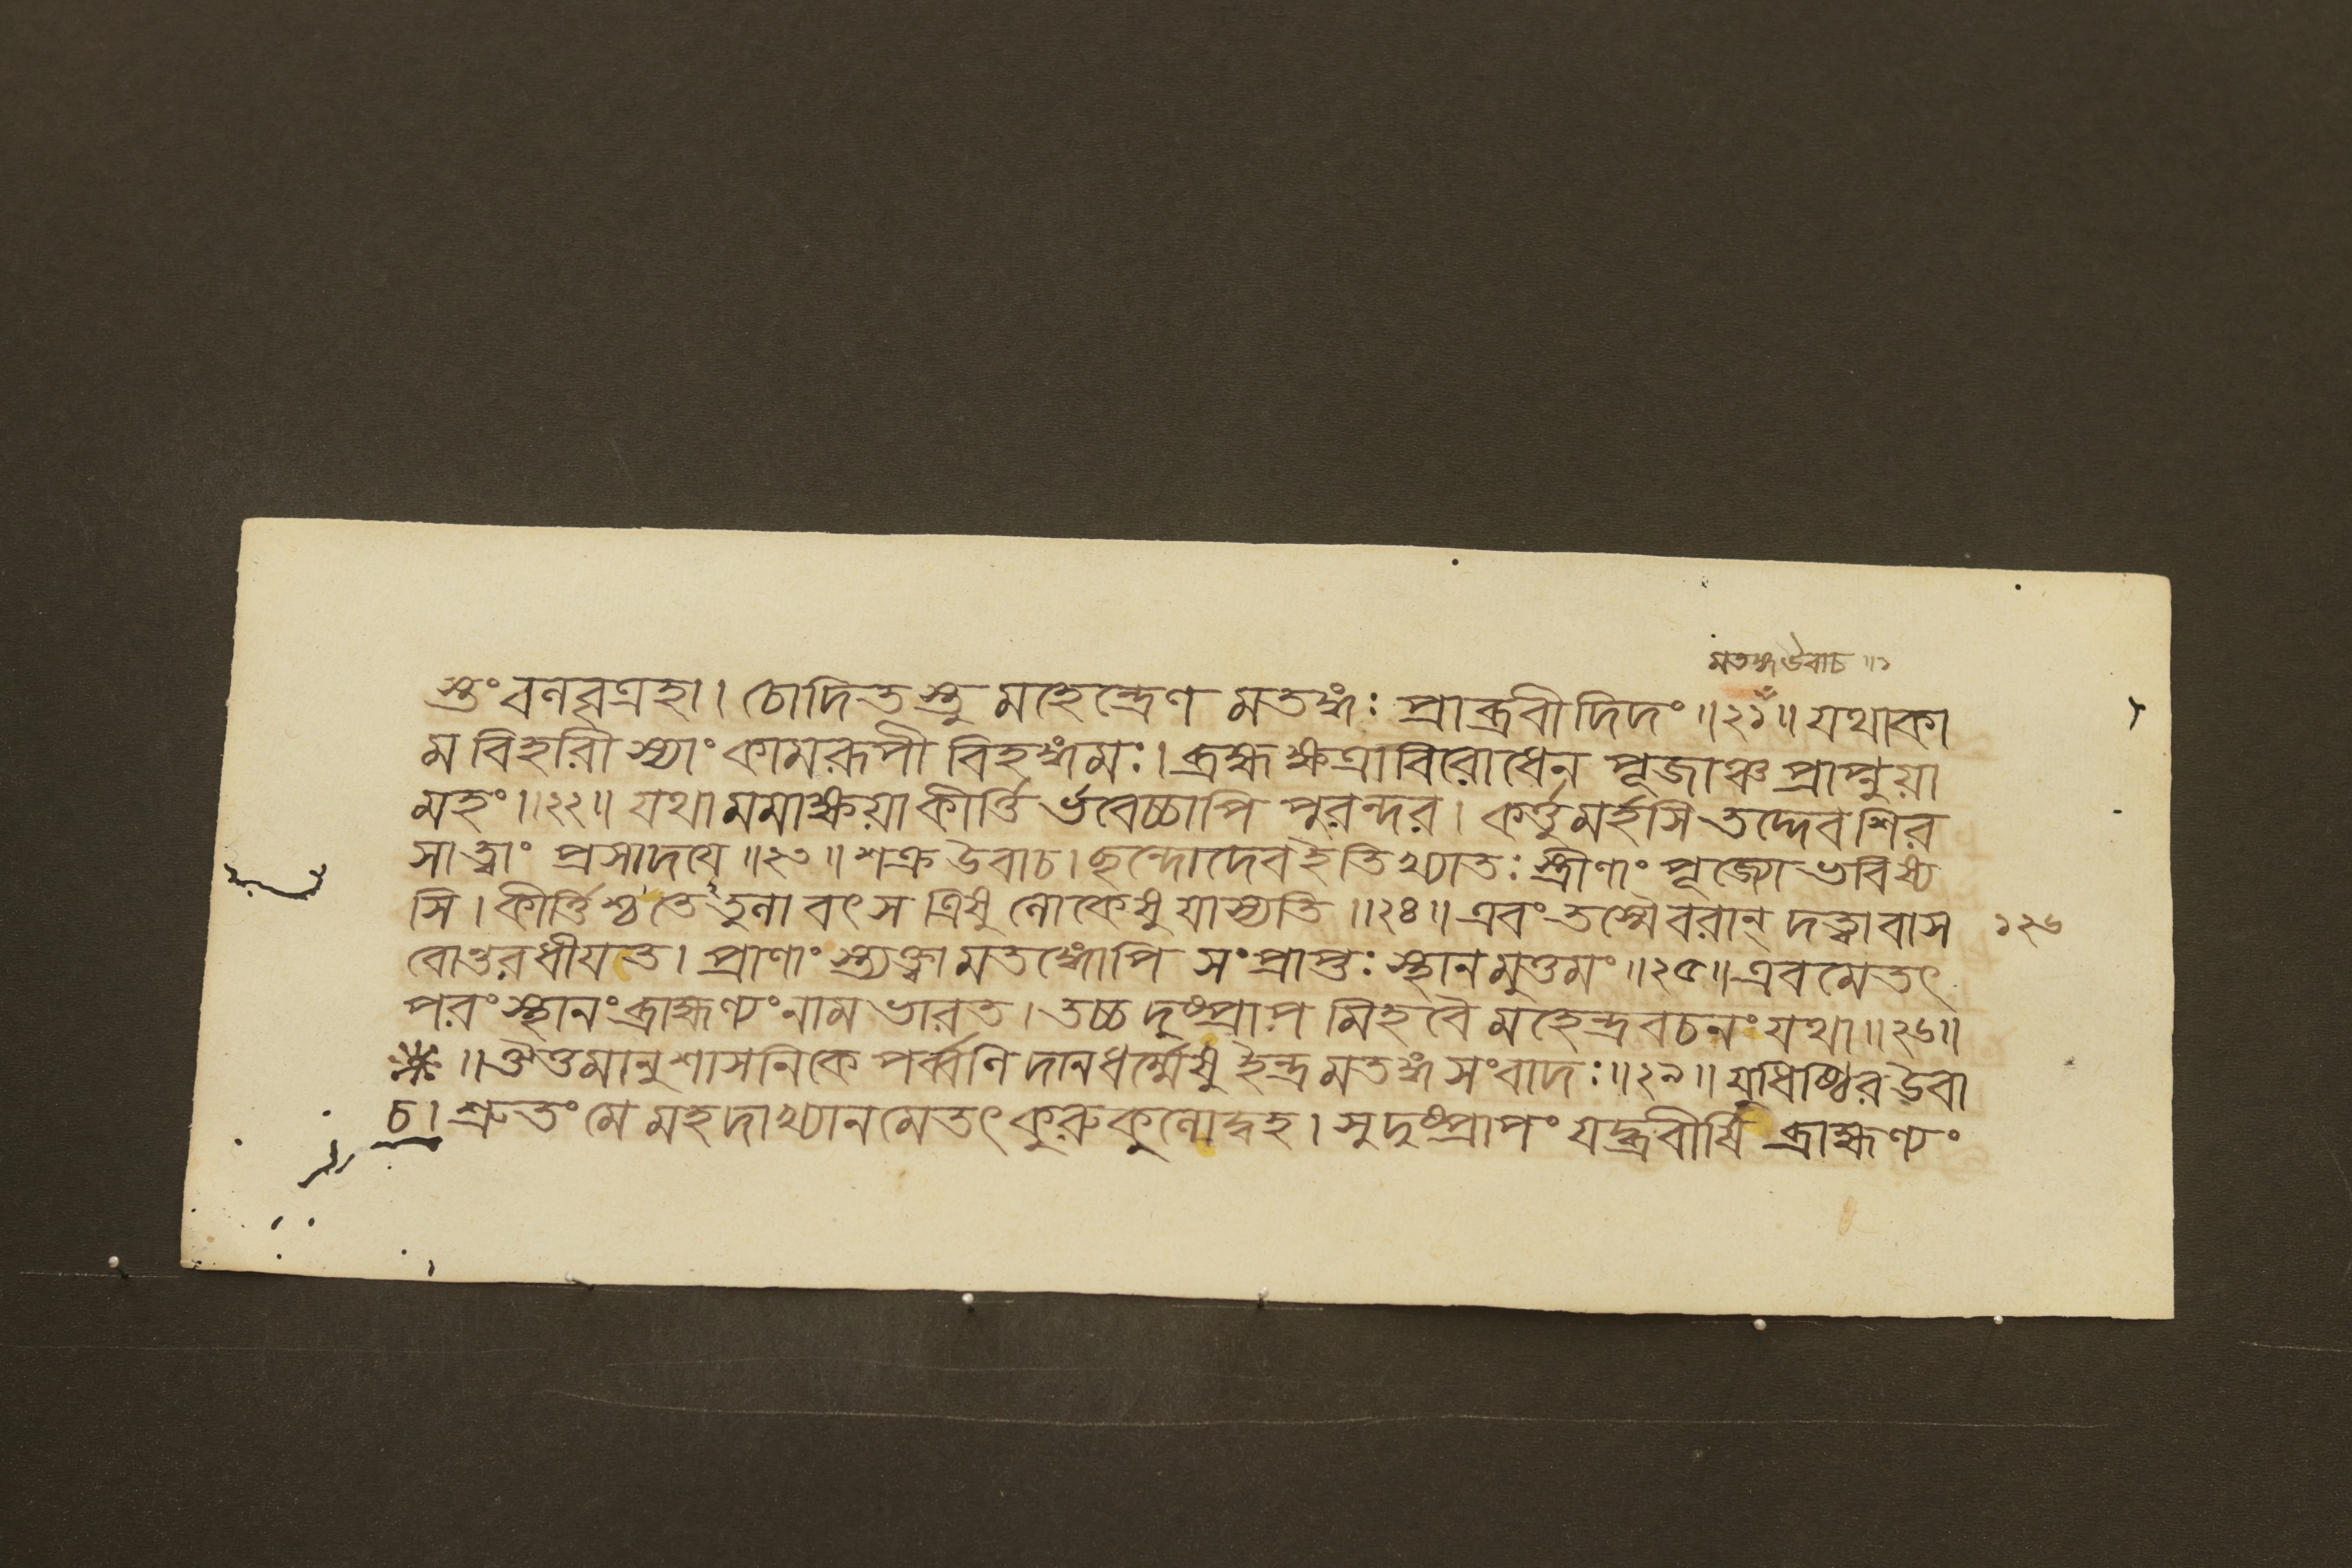 মতঙ্গউবাচ॥১
স্তং বলবৃত্রহা। চোদিতস্তু মহেন্দ্রেণ মতঙ্গঃ প্রাব্রবীদিদং॥২১॥ যথাকা
ম বিহারী স্যাং কামরূপী বিহঙ্গমঃ। ব্রহ্মক্ষত্রাবিরোধেন পূজাঞ্চ প্রাপ্নুয়া
মহং॥২২॥ যথা মমাক্ষয়া কীর্ত্তি র্ভবেচ্চাপি পুরন্দর। কর্ত্তুমর্হসি তদ্দেব শির
সা ত্বাং প্রসাদয়ে॥২৩॥ শক্র উবাচ। ছন্দোদেব ইতি খ্যাতঃ স্ত্রীণাং পূজ্যো ভবিষ্য
সি। কীর্ত্তিশ্চ তেতুলা বৎস ত্রিষু লোকেষু যাস্যতি॥২৪॥ এবং তস্মৈ বরান্ দত্ত্বা বাস
বোত্তরধীয়ত। প্রাণাং স্ত্যক্ত্বা মতঙ্গোপি সংপ্রাপ্তঃ স্থানমুত্তমং॥২৫॥ এবমেতৎ
১২৬
পরং স্থানং ব্রাহ্মণ্যং নাম ভারত। তচ্চ দুষ্প্রাপ মিহ বৈ মহেন্দ্রবচনং যথা॥২৬॥
॥ ঔত্তমানুশাসনিকে পর্ব্বণি দানধর্ম্মেষু ইন্দ্রমতঙ্গসংবাদঃ॥২৯॥ যুধিষ্ঠির উবা
চ। শ্রুতং মে মহদাখ্যানমেতৎ কুরুকুলোদ্বহ। সুদুষ্প্রাপং যদ্ব্রবীষি ব্রাহ্মণ্যং